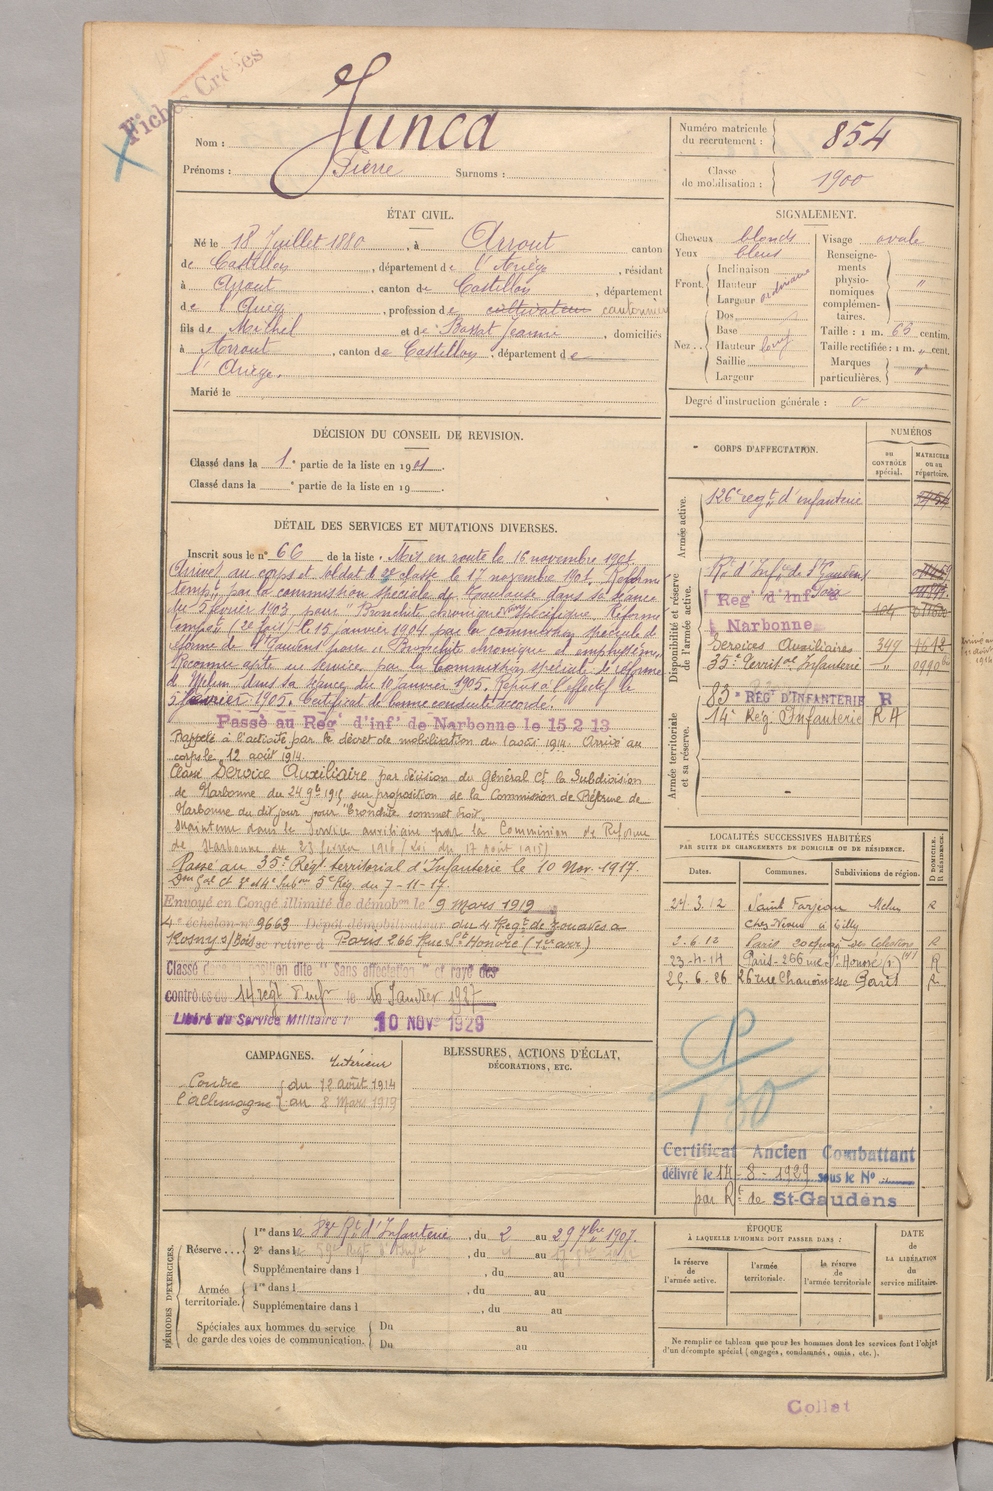 Fiches Créées
Nom : Junca
Prénoms : Pierre Surnoms :
Numéro matricule du recrutement : 854
Classe de mobilisation : 1900
ÉTAT CIVIL.
Né le 18 Juillet 1880, à Arrout canton
de Castillon, département de l'Ariège, résidant
à Arrout, canton de Castillon, département
de l'Ariège, profession de cultivateur cantonnier
fils de Michel et de Bassat Jeanne, domiciliés
à Arrout, canton de Castillon, département de
l'Ariège.
Marié le
SIGNALEMENT.
Cheveux blonds
Yeux bleus
Front. Inclinaison
Hauteur
Largeur ordinaire
Nez.. Dos
Base
Hauteur long
Saillie
Largeur
Visage ovale
Renseignements physionomiques complémentaires. "
Taille : 1 m. 63 centim.
Taille rectifiée : 1 m. " cent.
Marques particulières. "
Degré d'instruction générale : 0
DÉCISION DU CONSEIL DE REVISION.
Classé dans la 1e partie de la liste en 1901.
Classé dans la e partie de la liste en 19
DÉTAIL DES SERVICES ET MUTATIONS DIVERSES.
Inscrit sous le n° 66 de la liste. Mis en route le 16 novembre 1901.
Arrivé au corps et soldat de 2e classe le 17 novembre 1901. Réformé
temp. par la commission spéciale de Toulouse dans sa séance
du 5 février 1903 pour "Bronchite chronique non spécifique. Réformé
tempre (2e fois) le 15 janvier 1904 par la commission spéciale de
réforme de St Gaudens pour "Bronchite chronique et emphysème
Reconnu apte au service par la Commission spéciale de réforme
de Melun dans sa séance du 10 Janvier 1905. Repris à l'effectif le
5 février 1905. Certificat de bonne conduite accordé.
Passé au Regt d'inf de Narbonne le 15.2.13
Rappelé à l'activité par le décret de mobilisation du 1 août 1914. Arrivé au
corps le 12 août 1914
Classé Service Auxiliaire par décision du général Ct la Subdivision
de Narbonne du 24 9bre 1915 sur proposition de la Commission de Réforme de
Narbonne du dit jour pour "Bronchite sommet droit.
Maintenu dans le service auxiliaire par la Commission de Réforme
de Narbonne du 23 février 1916 (Loi du 17 Août 1915)
Passé au 35e Régt territorial d'Infanterie le 10 Nov. 1917.
Envoyé en Congé illimité de démobon le 9 Mars 1919
4e échelon n° 9663 Dépôt démobilisateur du 4 Regt de Zouaves à
Rosny s/Bois se retire à Paris 266 Rue St Honoré (1er arr.)
Classé dans la position dite "Sans affectation" et rayé des
contrôles du 14 regt d'inf le 16 Janvier 1927
Libéré du Service Militaire le 10 NOV 1929
CORPS D'AFFECTATION.
NUMÉROS
au CONTRÔLE spécial.
MATRICULE ou au répertoire.
Armée active.
126e regt d'infanterie
Disponibilité et réserve de l'armée active.
Rt d'Infrie de St Gaudens
Regt d'inf à
Narbonne
Services Auxiliaires 347 1612
35e Territal Infanterie "
Armée territoriale et sa réserve.
83e RÉGt D'INFANTERIE R
14e Rég. Infanterie R A
LOCALITÉS SUCCESSIVES HABITÉES
PAR SUITE DE CHANGEMENTS DE DOMICILE OU DE RÉSIDENCE.
Dates. Communes. Subdivisions de région. D DOMICILE. R RÉSIDENCE.
24.3.12 Saint Fargeau Melun R
2.6.12 Paris 20 quai des Célestins R
23-4-14 Paris-266 rue St Honoré (1) R
25.6.26 26 rue Chanoinesse Paris R
CP
130
Certificat Ancien Combattant
délivré le 14-8-1929 sous le N°
par Rt de St-Gaudens
CAMPAGNES.
Intérieur
Contre l'Allemagne du 12 août 1914
au 8 Mars 1919
BLESSURES, ACTIONS D'ÉCLAT,
DÉCORATIONS, ETC.
PÉRIODES D'EXERCICES.
Réserve... 1re dans le Rt d'Infanterie, du 2 au 29 7bre 1907.
2e dans le
Supplémentaire dans l , du au
Armée territoriale. 1re dans l , du au
Supplémentaire dans l , du au
Spéciales aux hommes du service de garde des voies de communication. Du au
Du au
ÉPOQUE
À LAQUELLE L'HOMME DOIT PASSER DANS :
la réserve de l'armée active.
l'armée territoriale.
la réserve de l'armée territoriale
DATE de LA LIBÉRATION du service militaire.
Ne remplir ce tableau que pour les hommes dont les services font l'objet
d'un décompte spécial (engagés, condamnés, omis, etc.).
Collat